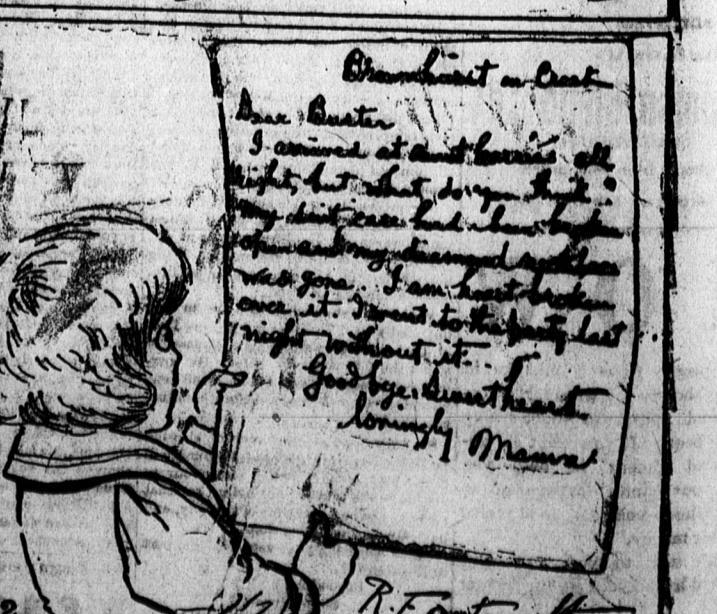 Dear Buster
I arrived at Aunt Carrie's all
right, but what do you think?
My suit case had been broken
open and my diamond necklace
was gone. I am heart broken
over it. I went to the party last
night without it.
Goodbye. Sweetheart.
lovingly Mama
R.F. Outcault